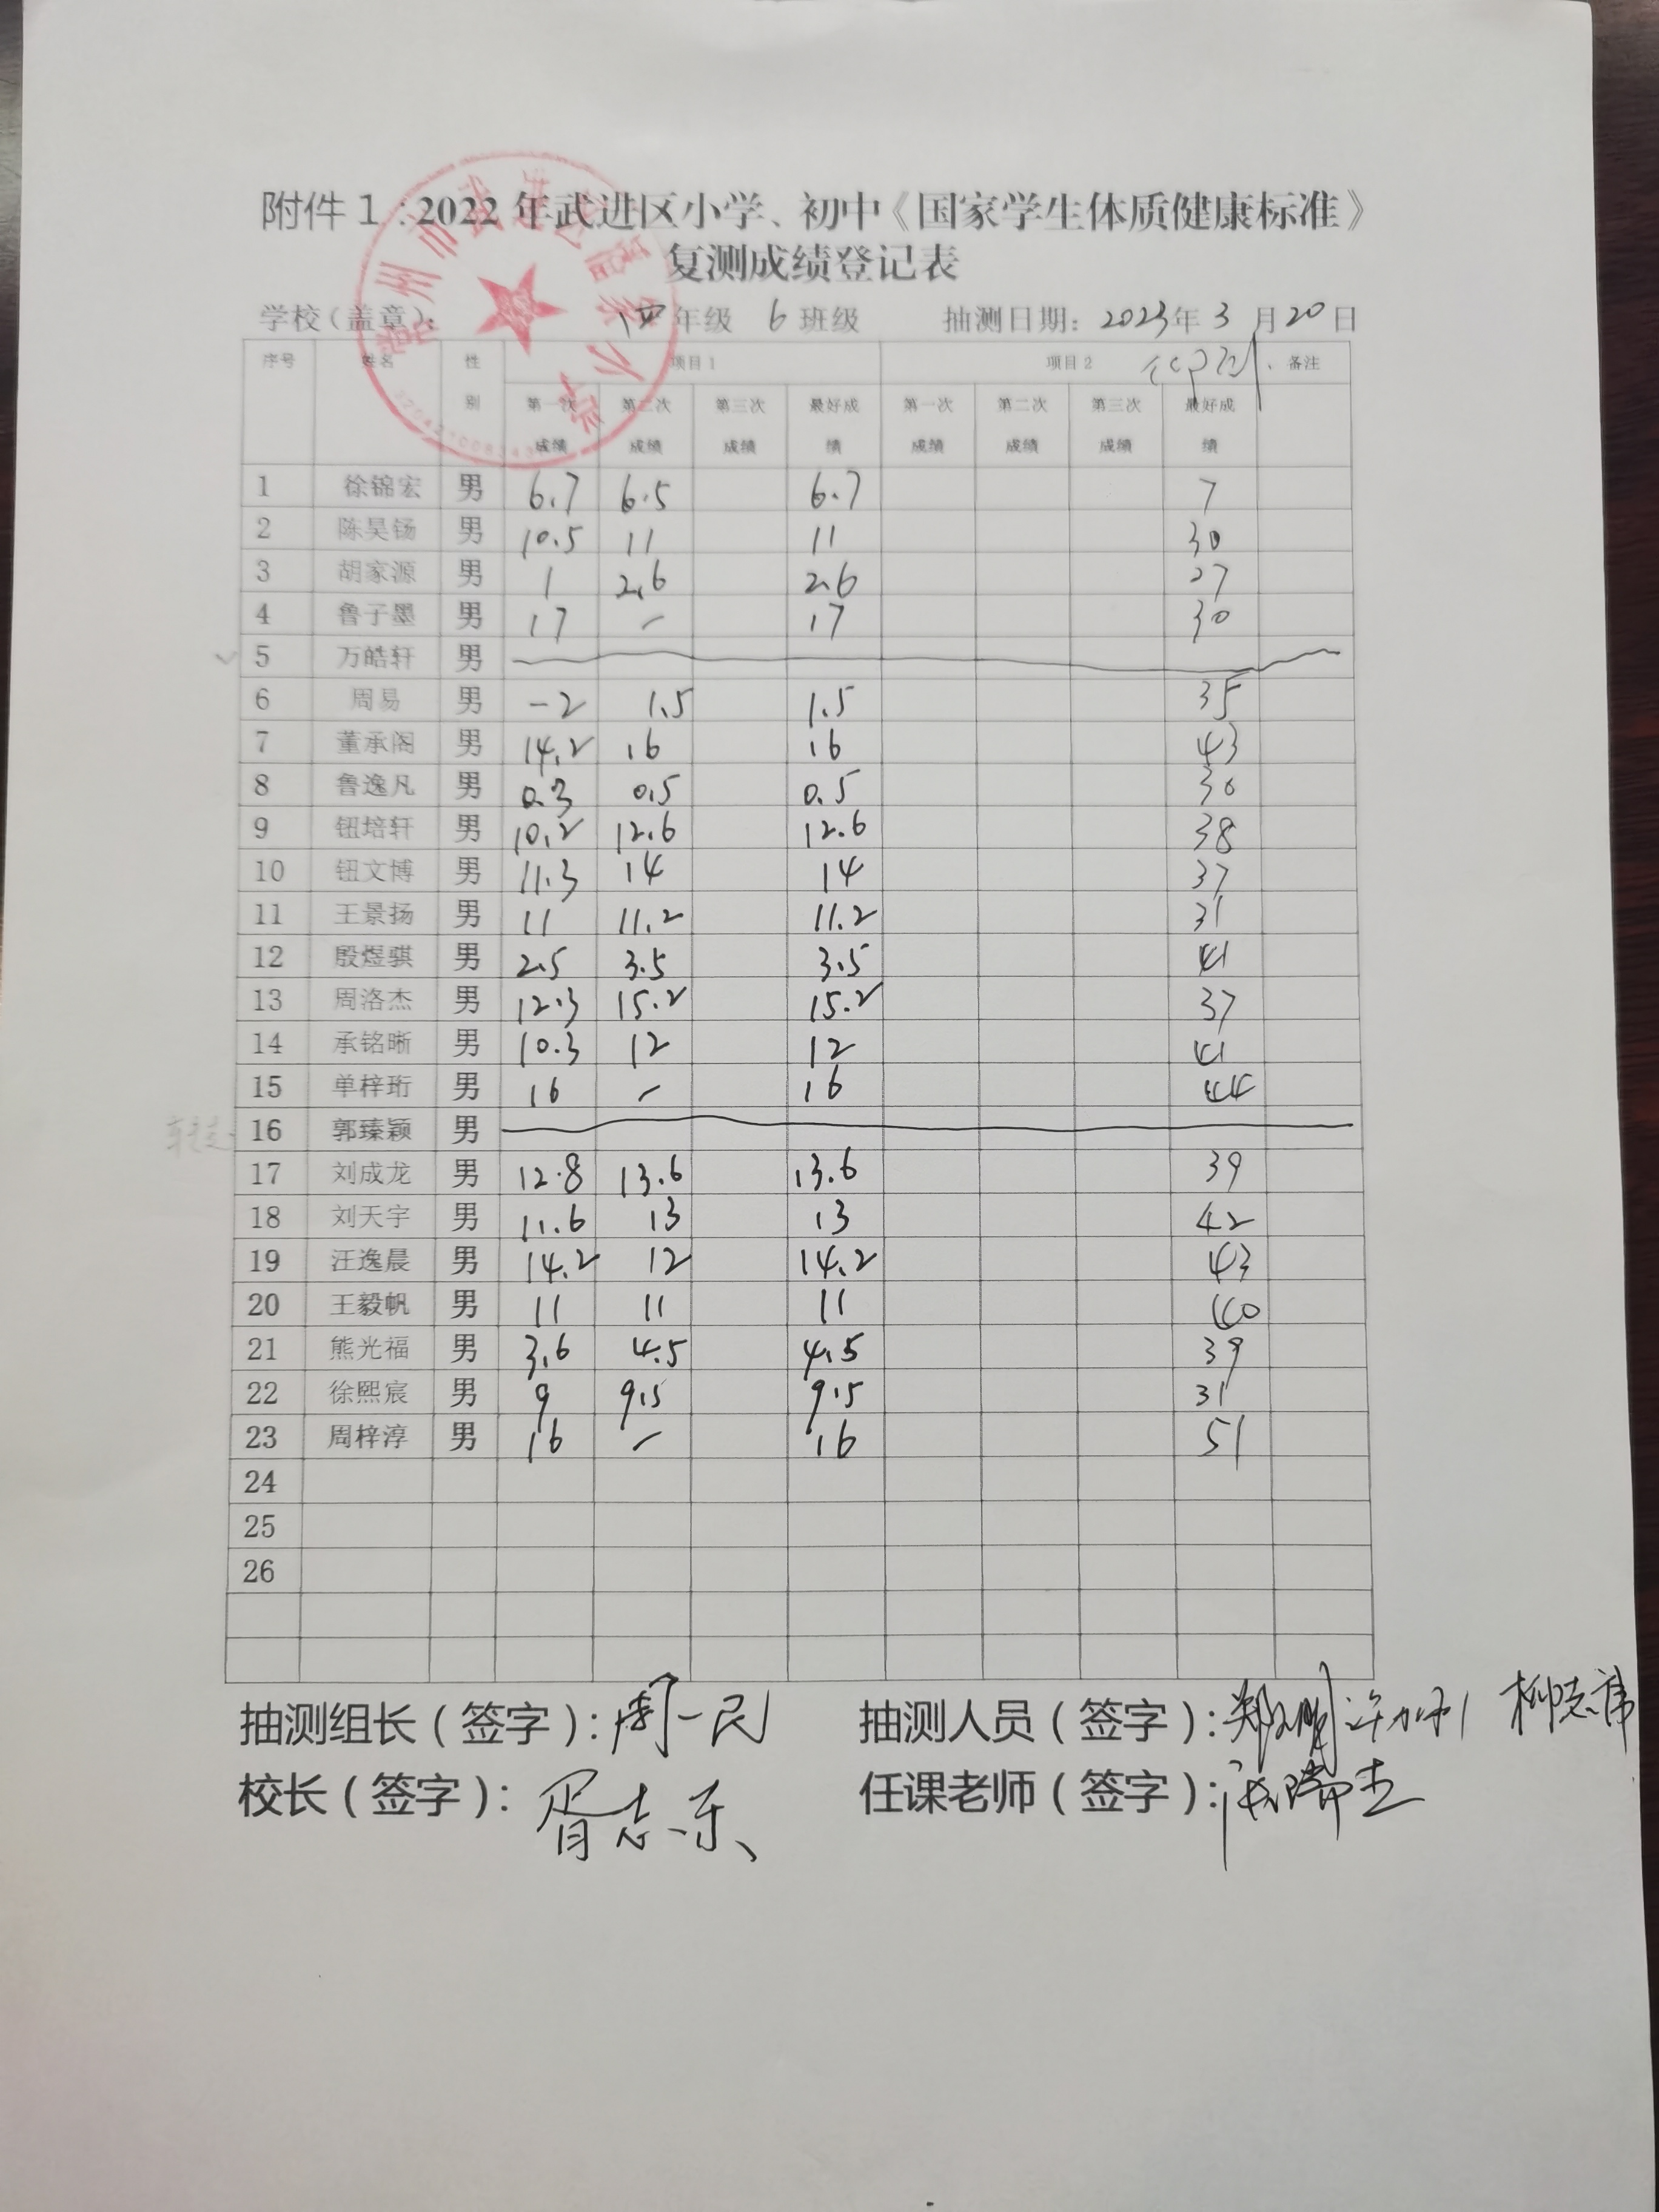 附件1：2022年武进区小学、初中《国家学生体质健康标准》
复测成绩登记表
学校（盖章）： 四年级 6班级 抽测日期：2023年3月20日
序号 姓名 性别 项目1 项目2 仰卧 备注
第一次成绩 第二次成绩 第三次成绩 最好成绩 第一次成绩 第二次成绩 第三次成绩 最好成绩
1 徐锦宏 男 6.7 6.5 6.7 7
2 陈昊钖 男 10.5 11 11 30
3 胡家源 男 1 2.6 2.6 27
4 鲁子墨 男 17 - 17 30
5 万皓轩 男
6 周易 男 -2 1.5 1.5 35
7 董承阁 男 14.2 16 16 43
8 鲁逸凡 男 0.3 0.5 0.5 30
9 钮培轩 男 10.2 12.6 12.6 38
10 钮文博 男 11.3 14 14 37
11 王景扬 男 11 11.2 11.2 31
12 殷煜骐 男 2.5 3.5 3.5 41
13 周洛杰 男 12.3 15.2 15.2 37
14 承铭晰 男 10.3 12 12 41
15 单梓珩 男 16 - 16 44
16 郭臻颖 男
17 刘成龙 男 12.8 13.6 13.6 39
18 刘天宇 男 11.6 13 13 42
19 汪逸晨 男 14.2 12 14.2 43
20 王毅帆 男 11 11 11 40
21 熊光福 男 3.6 4.5 4.5 39
22 徐熙宸 男 9 9.5 9.5 31
23 周梓淳 男 16 - 16 51
24
25
26
抽测组长（签字）：周一民 抽测人员（签字）： 柳志伟
校长（签字）：胥志东 任课老师（签字）：